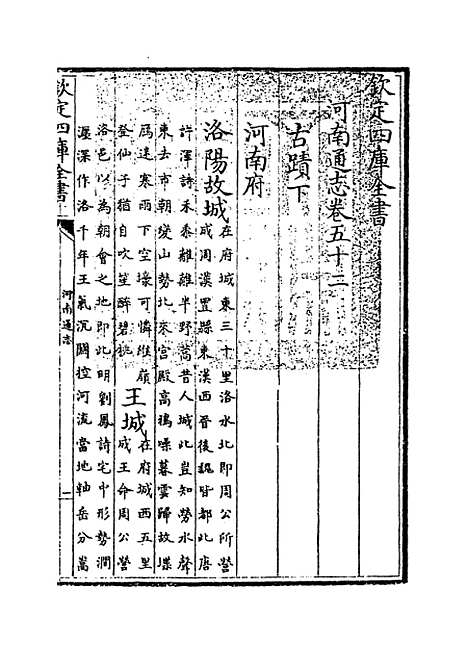 欽定四庫全書
河南通志卷五十二
古蹟下
河南府
洛陽故城在府城東三十里洛水北即周公所營
成周漢置縣東漢西晉後魏皆都此唐
許渾詩禾黍離離半野蒿昔人城此豈知勞水聲
東去市朝變山勢北來宮殿高鴉噪暮雲歸故堞
鴈迷寒雨下空壕可憐緱嶺
登仙子猶自吹笙醉碧桃
王城在府城西五里
成王命周公營
洛邑以為朝會之地即此明劉鳳詩宅中形勢澗
瀍深作洛千年王氣沉關控河流當地軸岳分嵩
欽定四庫全書
河南通志
一